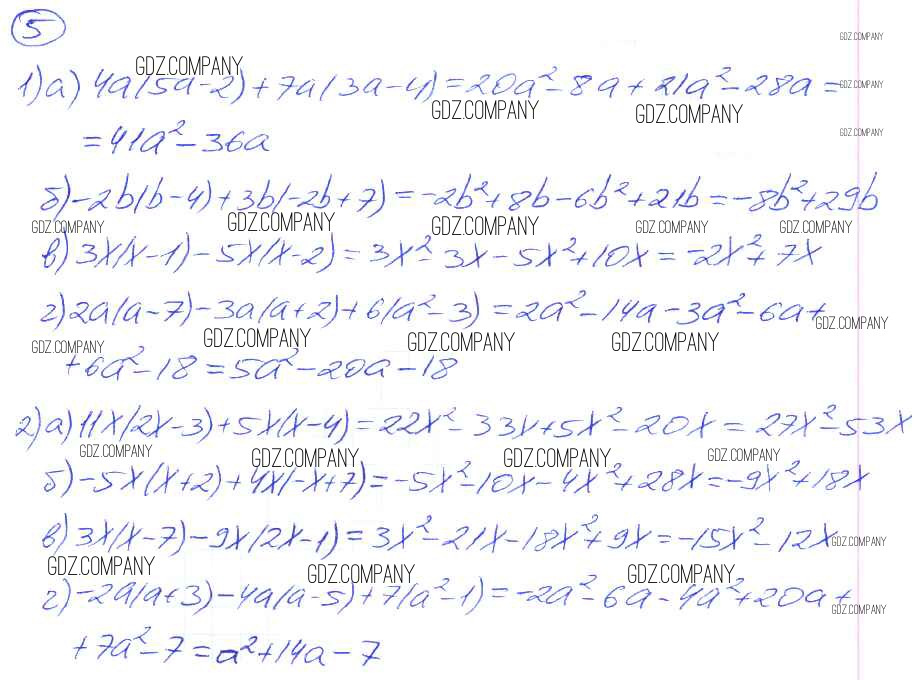 5
GDZ.COMPANY
GDZ.COMPANY
1) а) 4a(5a-2)+7a(3a-4)=20a²-8a+21a²-28a=
GDZ.COMPANY
GDZ.COMPANY GDZ.COMPANY
GDZ.COMPANY
=41a²-36a
б) -2b(b-4)+3b(-2b+7)=-2b²+8b-6b²+21b=-8b²+29b
GDZ.COMPANY GDZ.COMPANY GDZ.COMPANY GDZ.COMPANY GDZ.COMPANY
в) 3x(x-1)-5x(x-2)=3x²-3x-5x²+10x=-2x²+7x
г) 2a(a-7)-3a(a+2)+6(a²-3)=2a²-14a-3a²-6a+
GDZ.COMPANY
GDZ.COMPANY GDZ.COMPANY GDZ.COMPANY GDZ.COMPANY
+6a²-18=5a²-20a-18
2) а) 11x(2x-3)+5x(x-4)=22x²-33x+5x²-20x=27x²-53x
GDZ.COMPANY GDZ.COMPANY GDZ.COMPANY GDZ.COMPANY
б) -5x(x+2)+4x(-x+7)=-5x²-10x-4x²+28x=-9x²+18x
в) 3x(x-7)-9x(2x-1)=3x²-21x-18x²+9x=-15x²-12x
GDZ.COMPANY
GDZ.COMPANY GDZ.COMPANY GDZ.COMPANY
г) -2a(a+3)-4a(a-5)+7(a²-1)=-2a²-6a-4a²+20a+
GDZ.COMPANY
+7a²-7=a²+14a-7